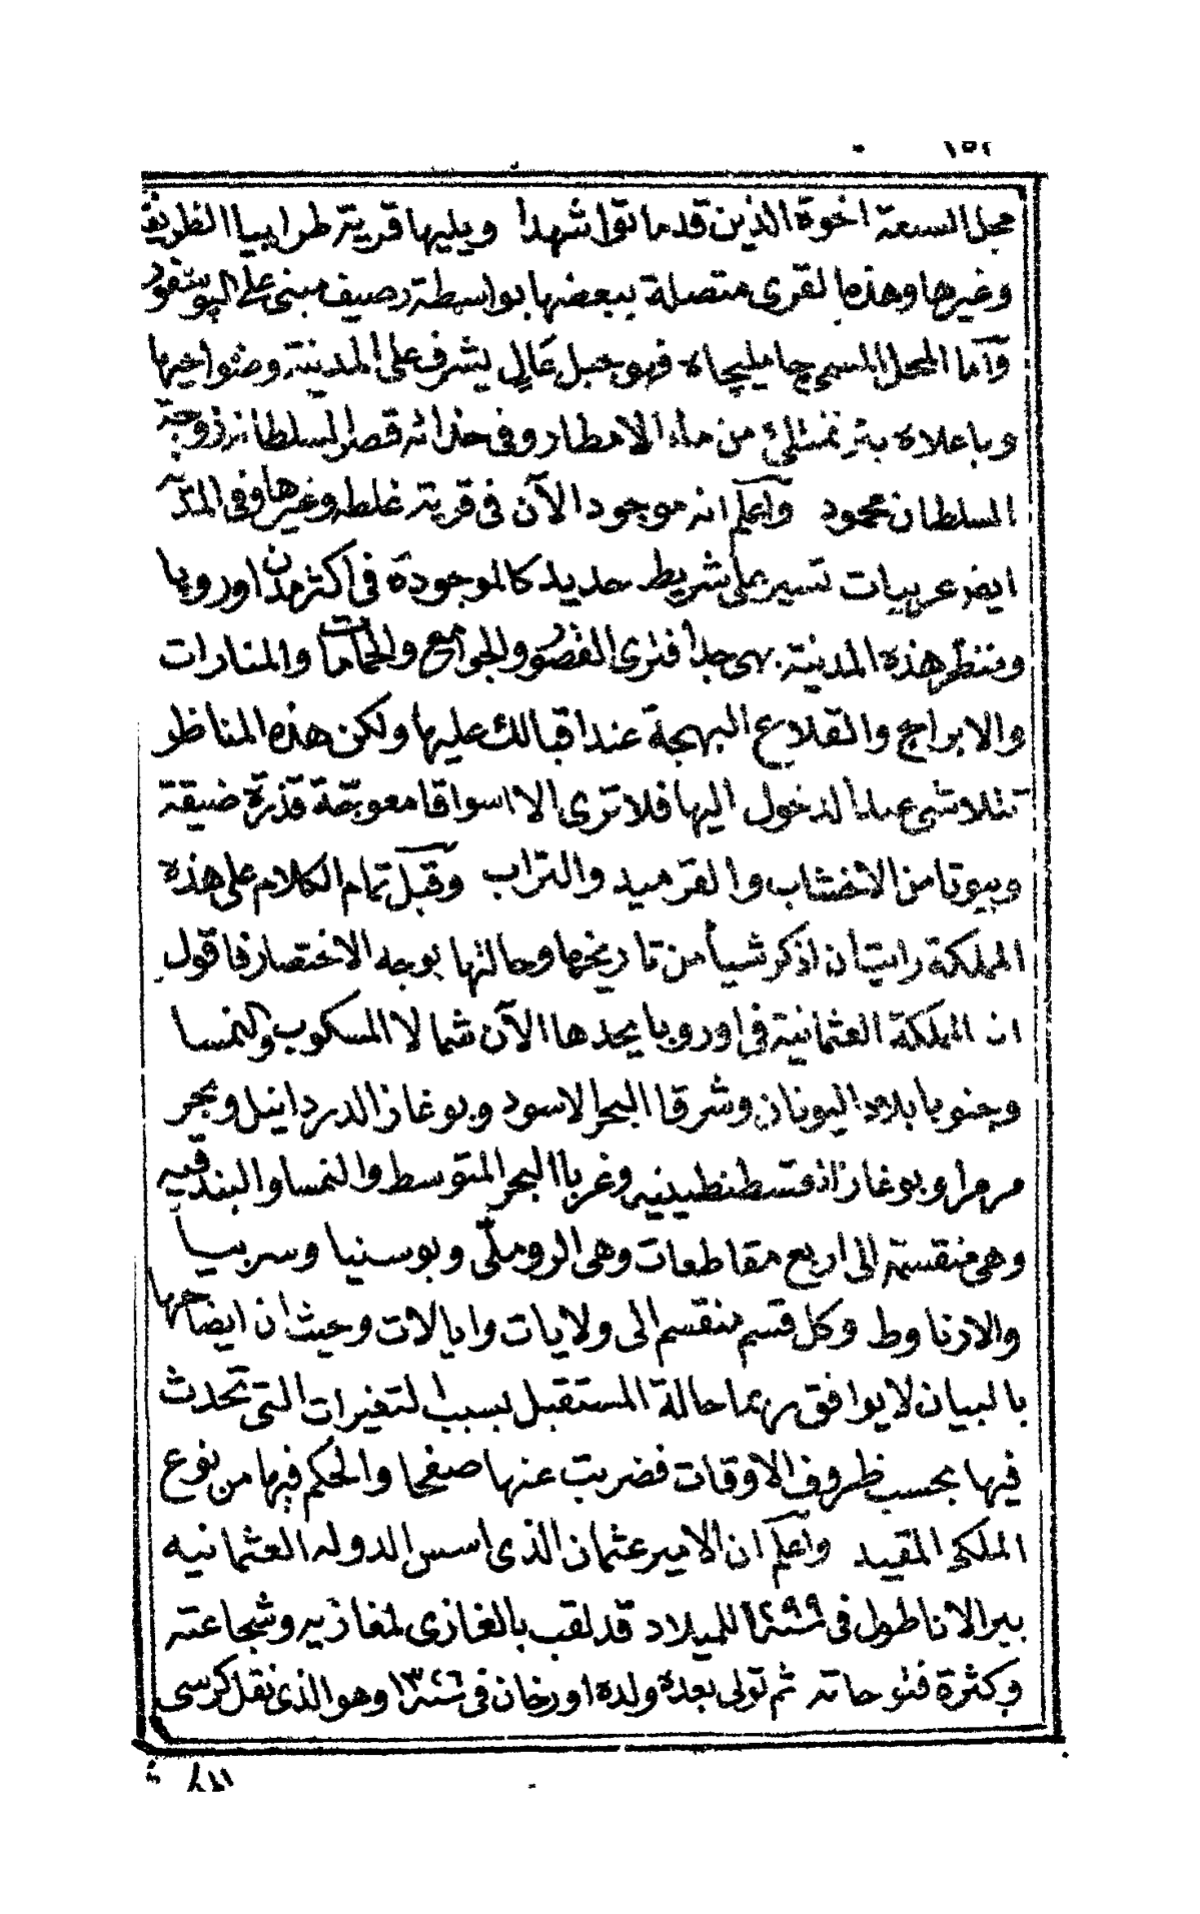 ١٥٢
محل السبعة اخوة الذين قد ماتوا شهدأ ويليها قرية طرابيا الظريفة
وغيرها وهذه القرى متصلة ببعضها بواسطة رصيف مبنى على البوسفور
وأما المحل المسمى جامليجاه فهو جبل عالٍ يشرف على المدينة وضواحيها
وباعلاه بئر تمتلئ من ماء الامطار وفى حذائه قصر السلطانه زوجة
السلطان محمود وأعلم انه موجود الآن فى قرية غلطه وغيرها وفى المدينة
ايضه عربيات تسير على شريط حديد كالموجودة فى اكثر مدن اوروبا
ومنظر هذه المدينة بهى جدا فترى القصور والجوامع والحمامات والمنارات
والابراج والقلاع البهجة عند اقبالك عليها ولكن هذه المناظر
تتلاشى عند الدخول اليها فلا ترى الا اسواقا معوجة قذرة ضيقة
وبيوتا من الاخشاب والقرميد والتراب وقبل تمام الكلام على هذه
المملكة رايت أن اذكر شيأ من تاريخها وحالتها بوجه الاختصار فاقول
ان المملكة العثمانية فى اوروبا يحدها الآن شمالا المسكوب والنمسا
وجنوبا بلاد اليونان وشرقا البحر الاسود وبوغاز الدردانيل وبحر
مرمرا وبوغاز القسطنطينيه وغربا البحر المتوسط والنمسا والبندقيه
وهى منقسمة الى اربع مقاطعات وهى الروملّى وبوسنيا وسربيا
والارناوط وكل قسم منقسم الى ولايات وايالات وحيث ان ايضاحها
بالبيان لا يوافق ربما حالة المستقبل بسبب التغيرات التى تحدث
فيها بحسب ظروف الاوقات فضربت عنها صفحا والحكم فيها من نوع
الملكى المقيد وأعلم ان الامير عثمان الذى أسس الدوله العثمانيه
ببر الاناطول فى سنة ١٢٩٩ للميلاد قد لقب بالغازى لمغازيه وشجاعته
وكثرة فتوحاته ثم تولى بعده ولده اورخان فى سنة ١٣٢٦ وهو الذى نقل كرسى